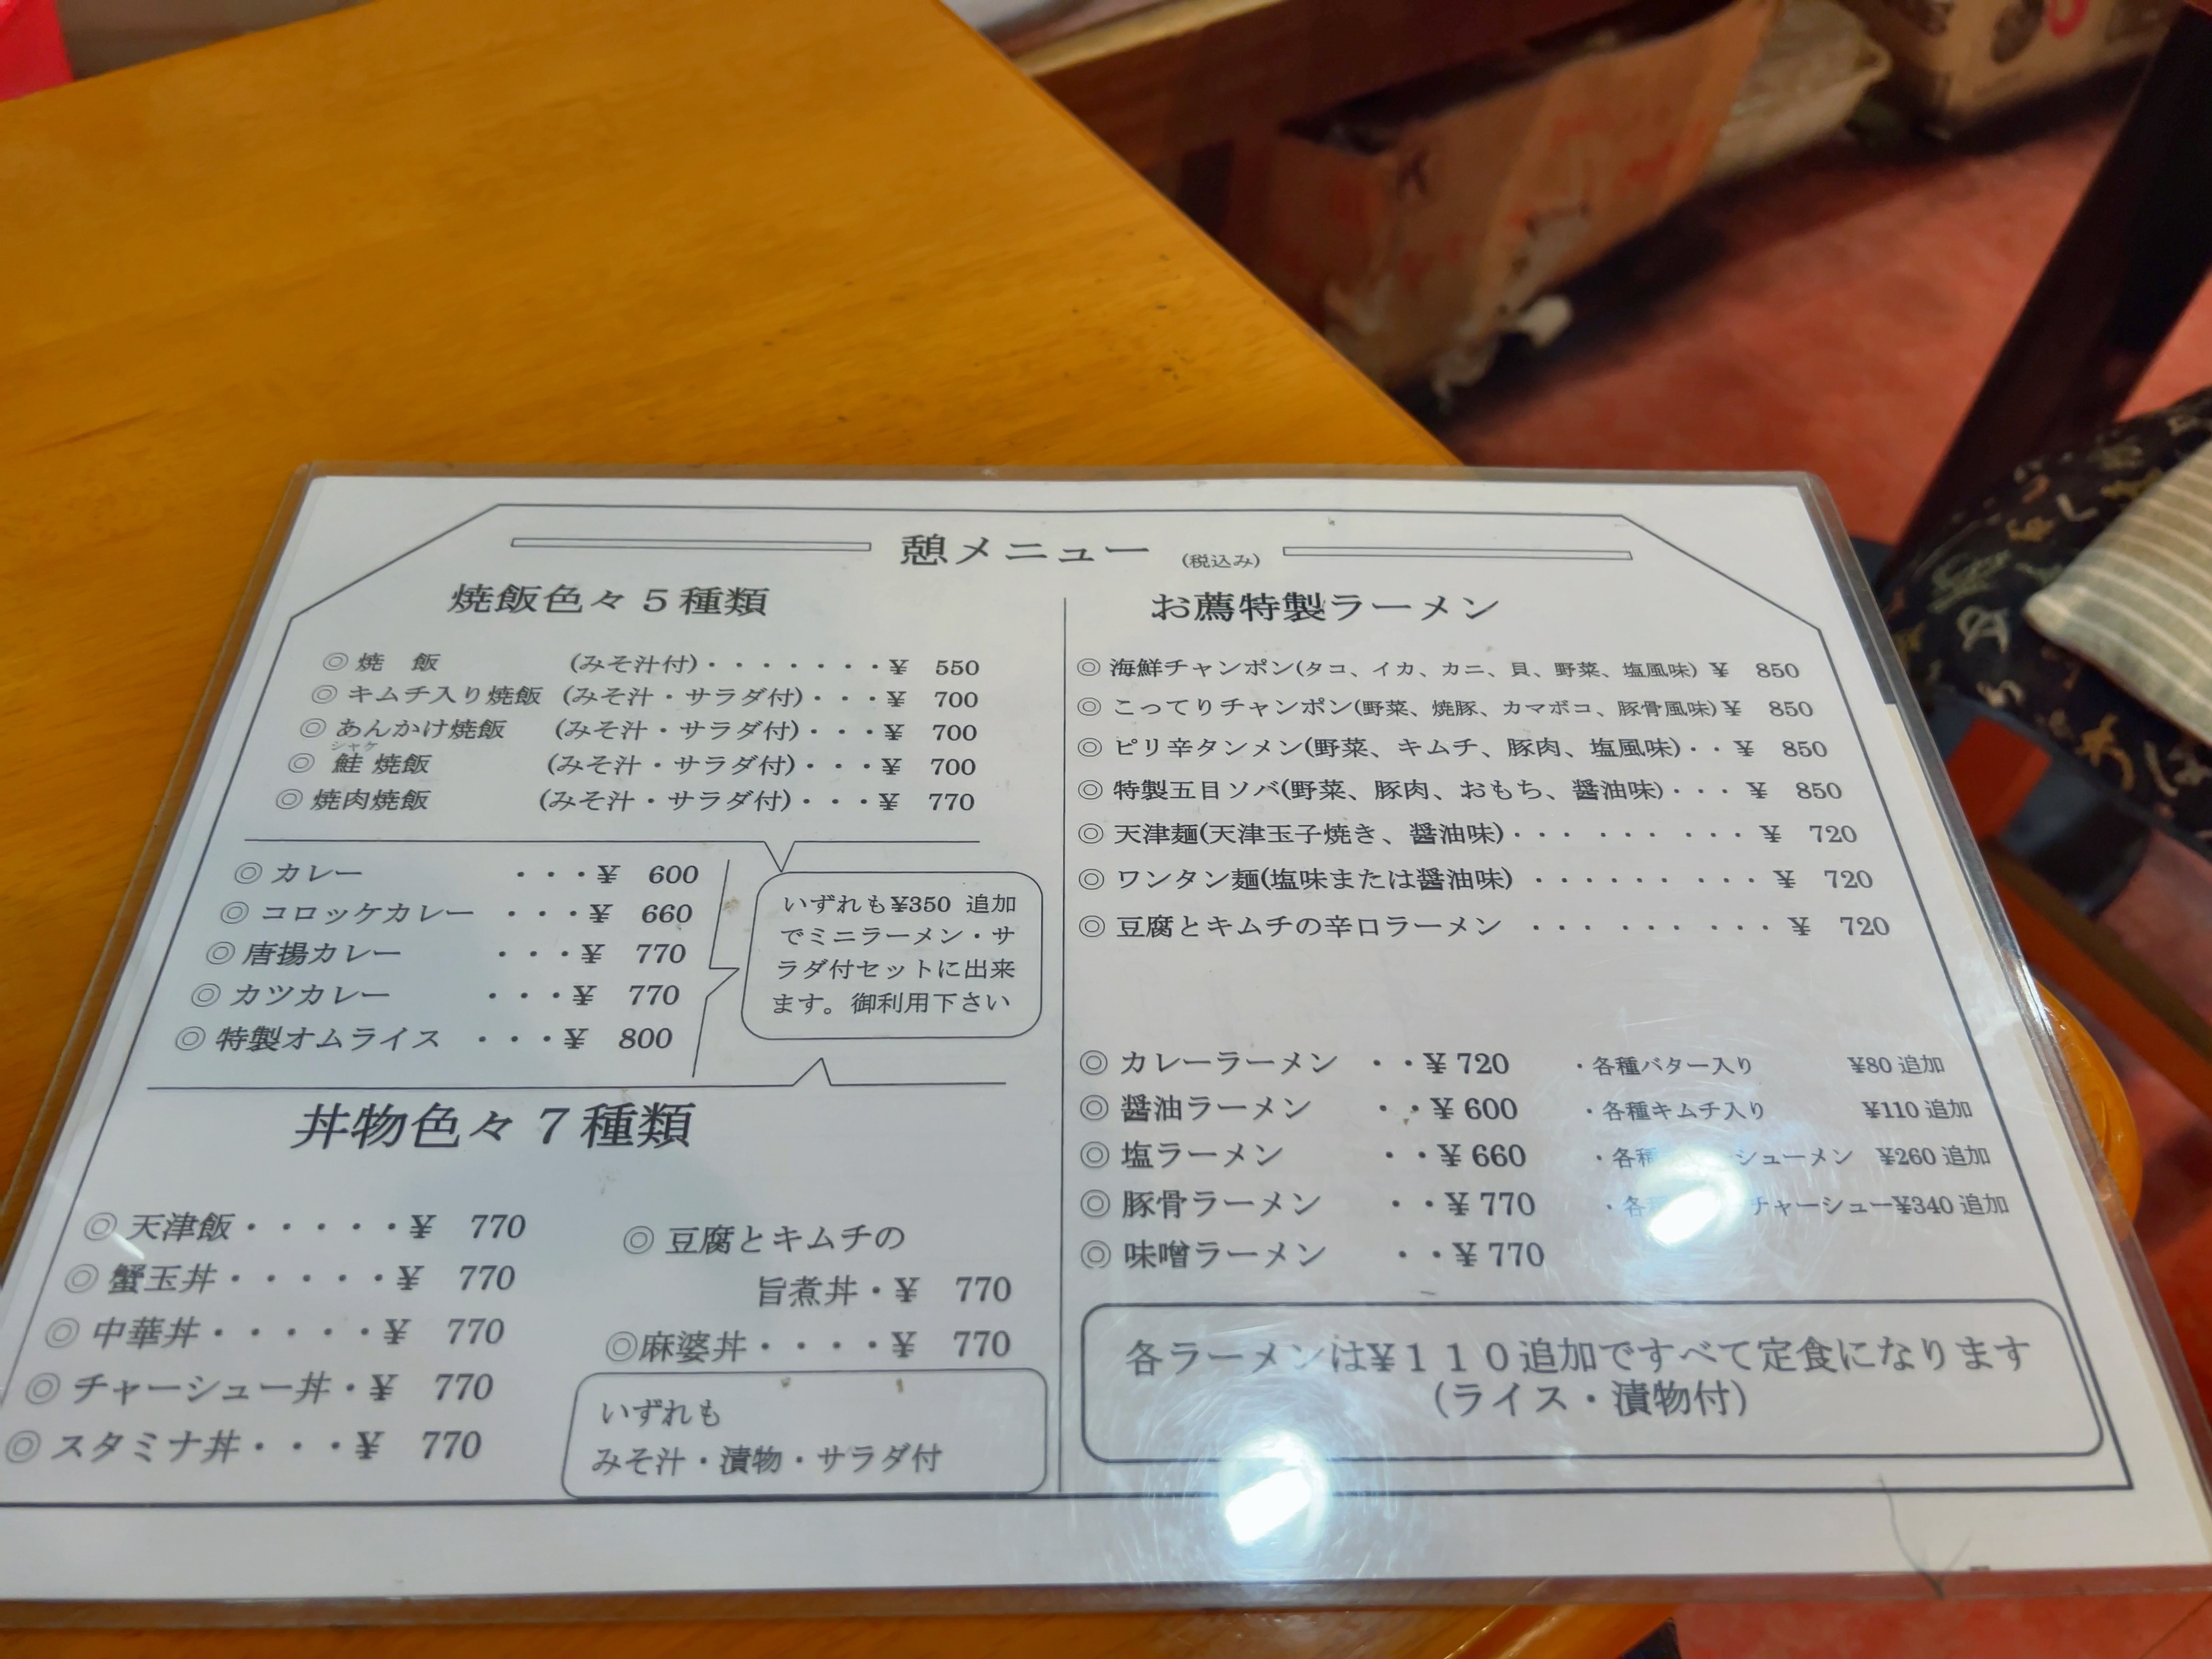 憩メニュー (税込み)
焼飯色々5種類
◎焼 飯 (みそ汁付)・・・・・・・¥ 550
◎キムチ入り焼飯 (みそ汁・サラダ付)・・・¥ 700
◎あんかけ焼飯 (みそ汁・サラダ付)・・・¥ 700
シャケ
◎鮭焼飯 (みそ汁・サラダ付)・・・¥ 700
◎焼肉焼飯 (みそ汁・サラダ付)・・・¥ 770
◎カレー ・・・¥ 600
◎コロッケカレー ・・・¥ 660
◎唐揚カレー ・・・¥ 770
◎カツカレー ・・・¥ 770
◎特製オムライス ・・・¥ 800
いずれも¥350 追加
でミニラーメン・サ
ラダ付セットに出来
ます。御利用下さい
丼物色々7種類
◎天津飯・・・・・¥ 770
◎蟹玉丼・・・・・¥ 770
◎中華丼・・・・・¥ 770
◎チャーシュー丼・¥ 770
◎スタミナ丼・・・¥ 770
◎豆腐とキムチの
旨煮丼・¥ 770
◎麻婆丼・・・・¥ 770
いずれも
みそ汁・漬物・サラダ付
お薦特製ラーメン
◎海鮮チャンポン(タコ、イカ、カニ、貝、野菜、塩風味) ¥ 850
◎こってりチャンポン(野菜、焼豚、カマボコ、豚骨風味)¥ 850
◎ピリ辛タンメン(野菜、キムチ、豚肉、塩風味)・・¥ 850
◎特製五目ソバ(野菜、豚肉、おもち、醤油味)・・・ ¥ 850
◎天津麺(天津玉子焼き、醤油味)・・・ ・・・ ・・・ ¥ 720
◎ワンタン麺(塩味または醤油味) ・・・・・・ ・・・ ¥ 720
◎豆腐とキムチの辛口ラーメン ・・・ ・・・ ・・・ ¥ 720
◎カレーラーメン ・・¥ 720
◎醤油ラーメン ・・¥ 600
◎塩ラーメン ・・¥ 660
◎豚骨ラーメン ・・¥ 770
◎味噌ラーメン ・・¥ 770
・各種バター入り ¥80 追加
・各種キムチ入り ¥110 追加
・各種 シューメン ¥260 追加
・各種 チャーシュー¥340 追加
各ラーメンは¥110追加ですべて定食になります
(ライス・漬物付)